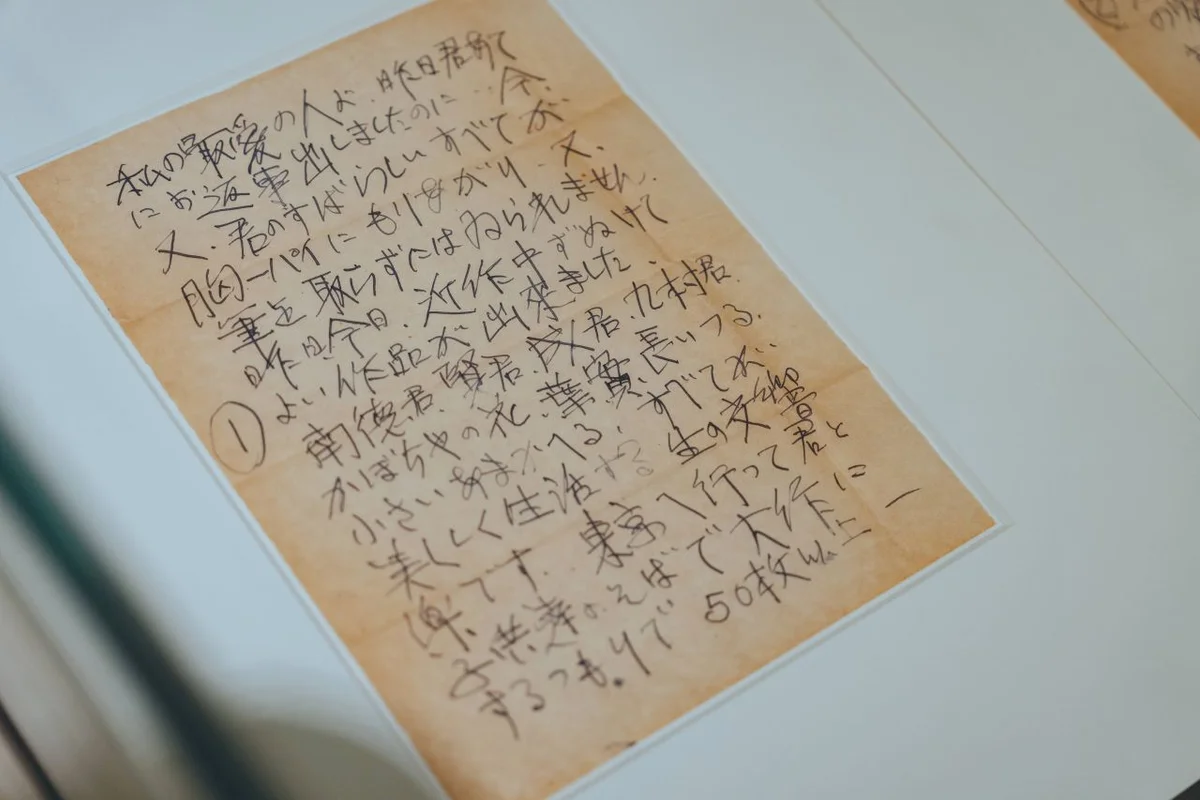 私の最愛の人よ、昨日君あて
にお返事出しましたのに、今、
又、君のすばらしいすべてが
胸一パイにもりあがり、又、
筆を取らずにはゐられません、
昨日、今日、近作中ずぬけて
①
よい作品が出来ました、
南徳君、賢君、成君、九村君、
かぼちゃの花、葉、實、長いつる、
小さいあまがへる、すべてが、
美しく生活する生の交響
楽です、東京へ行って君と
子供等のそばで大作に
するつもりで50枚以上